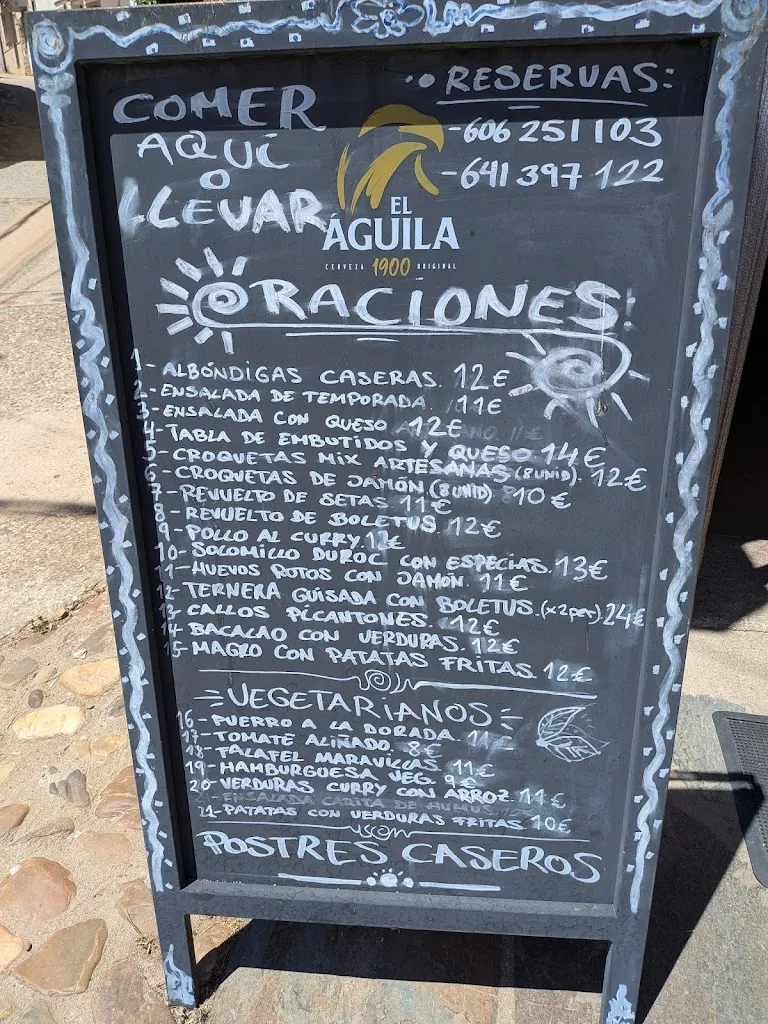 COMER
AQUÍ
O
LLEVAR
RESERVAS:
-606 251 103
-641 397 122
EL
ÁGUILA
CERVEZA 1900 ORIGINAL
RACIONES:
1- ALBÓNDIGAS CASERAS. 12€
2- ENSALADA DE TEMPORADA. 11€
3- ENSALADA CON QUESO 12€
4- TABLA DE EMBUTIDOS Y QUESO. 14€
5- CROQUETAS MIX ARTESANAS (8UNID). 12€
6- CROQUETAS DE JAMÓN (8UNID) 10€
7- REVUELTO DE SETAS. 11€
8- REVUELTO DE BOLETUS. 12€
9- POLLO AL CURRY. 12€
10- SOLOMILLO DUROC CON ESPECIAS. 13€
11- HUEVOS ROTOS CON JAMÓN. 11€
12- TERNERA GUISADA CON BOLETUS. (x2per). 24€
13- CALLOS PICANTONES. 12€
14- BACALAO CON VERDURAS. 12€
15- MAGRO CON PATATAS FRITAS. 12€
VEGETARIANOS
16- PUERRO A LA DORADA. 11€
17- TOMATE ALIÑADO. 8€
18- FALAFEL MARAVILLAS 11€
19- HAMBURGUESA VEG. 9€
20- VERDURAS CURRY CON ARROZ 11€
ENSALADA CARITA DE HUMUS
21- PATATAS CON VERDURAS FRITAS 10€
POSTRES CASEROS